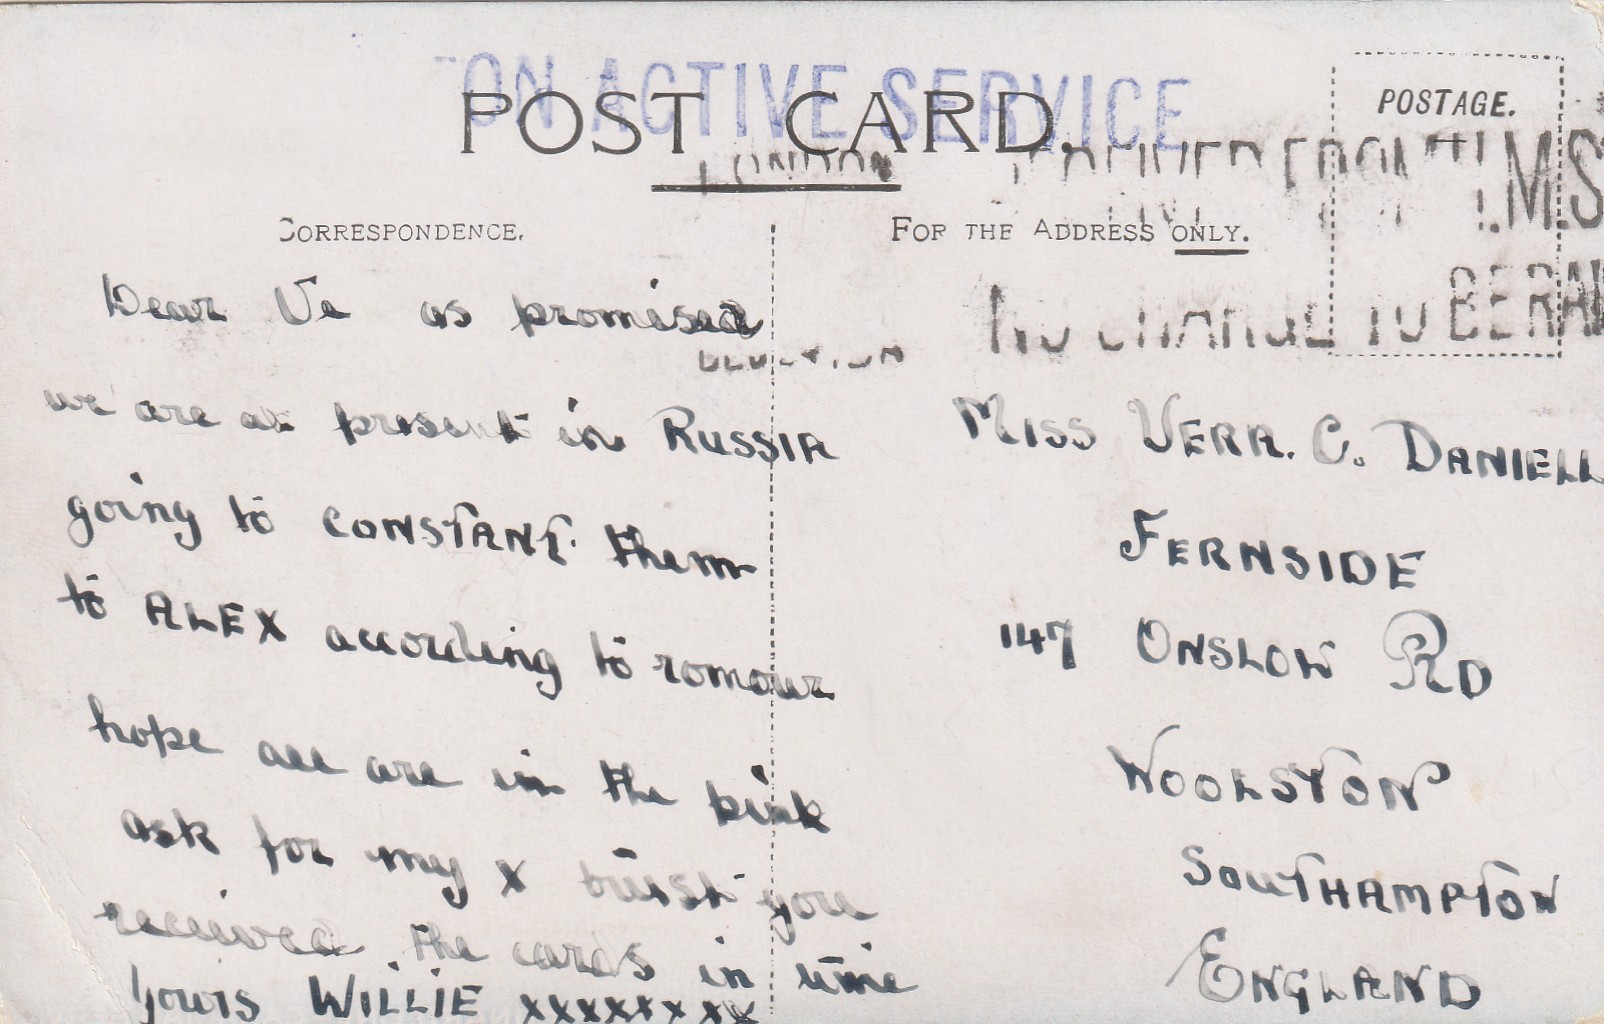 "ON ACTIVE SERVICE
POST CARD.
POSTAGE.
LONDON
RECEIVED FROM H.M.S
CORRESPONDENCE.
FOR THE ADDRESS ONLY.
NO CHARGE TO BE RAI
Dear Ve as promised
we are at present in RUSSIA
going to CONSTANT. them
to ALEX according to romour
hope all are in the pink
ask for my x trust you
received the cards in time
Yours WILLIE xxxxxxxx
MISS VERA. C. DANIELL
FERNSIDE
147 ONSLOW RD
WOOLSTON
SOUTHAMPTON
ENGLAND